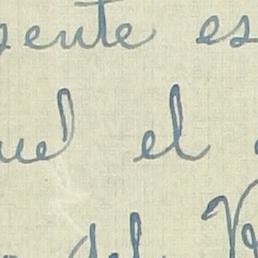 gente es
uel el
del V